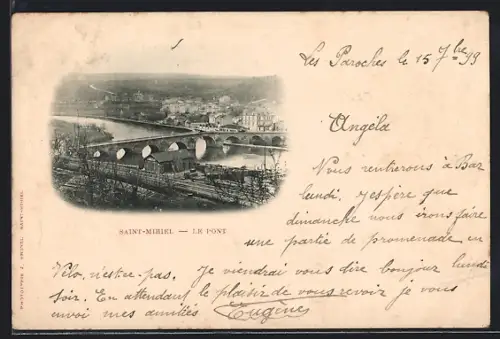 Les Paroches le 15 7bre 99
Angéla
Vous rentrerons à Bar
lundi. J'espère que
dimanche nous irons faire
une partie de promenade en
Vélo, n'est-ce-pas. Je viendrai vous dire bonjour lundi
soir. En attendant le plaisir de vous revoir je vous
envoi mes amitiés Eugène
SAINT-MIHIEL — LE PONT